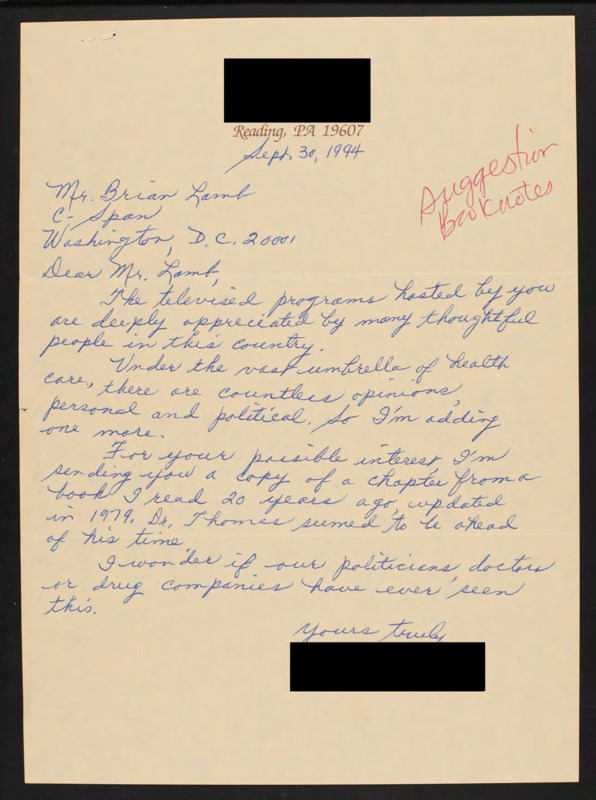 Reading, PA 19607
Sept. 30, 1994
Suggestion
Booknotes
Mr. Brian Lamb
C-Span
Washington, D.C. 20001
Dear Mr. Lamb,
The televised programs hosted by you
are deeply appreciated by many thoughtful
people in this country.
Under the vast umbrella of health
care, there are countless opinions,
personal and political. So I'm adding
one more.
For your possible interest, I'm
sending you a copy of a chapter from a
book I read 20 years ago, updated
in 1979. Dr. Thomas seemed to be ahead
of his time
I wonder if our politicians, doctors
or drug companies have ever seen
this.
Yours truly